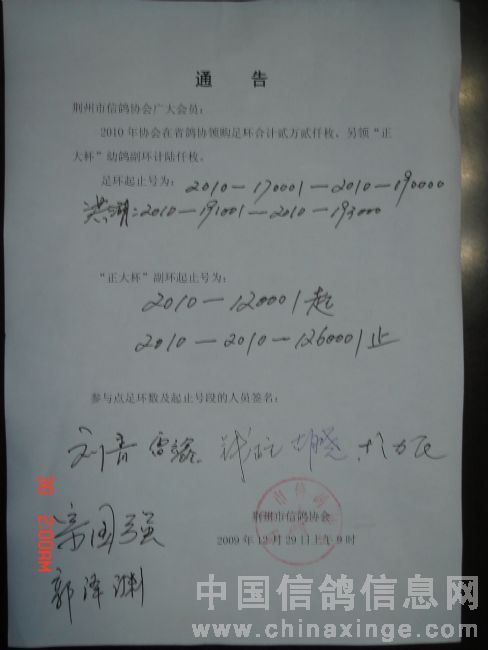 通 告
荆州市信鸽协会广大会员：
2010年协会在省鸽协领购足环合计贰万贰仟枚。另领“正
大杯”幼鸽副环计陆仟枚。
足环起止号为：2010—170001—2010—190000
洪湖：2010—191001—2010—193000
“正大杯”副环起止号为：
2010—120001起
2010—2010—126000止
参与点足环数及起止号段的人员签名：
刘音
荆州市信鸽协会
2009年12月29日上午9时
宗国强
郭泽渊
30 2:00AM
中国信鸽信息网
www.chinaxinge.com